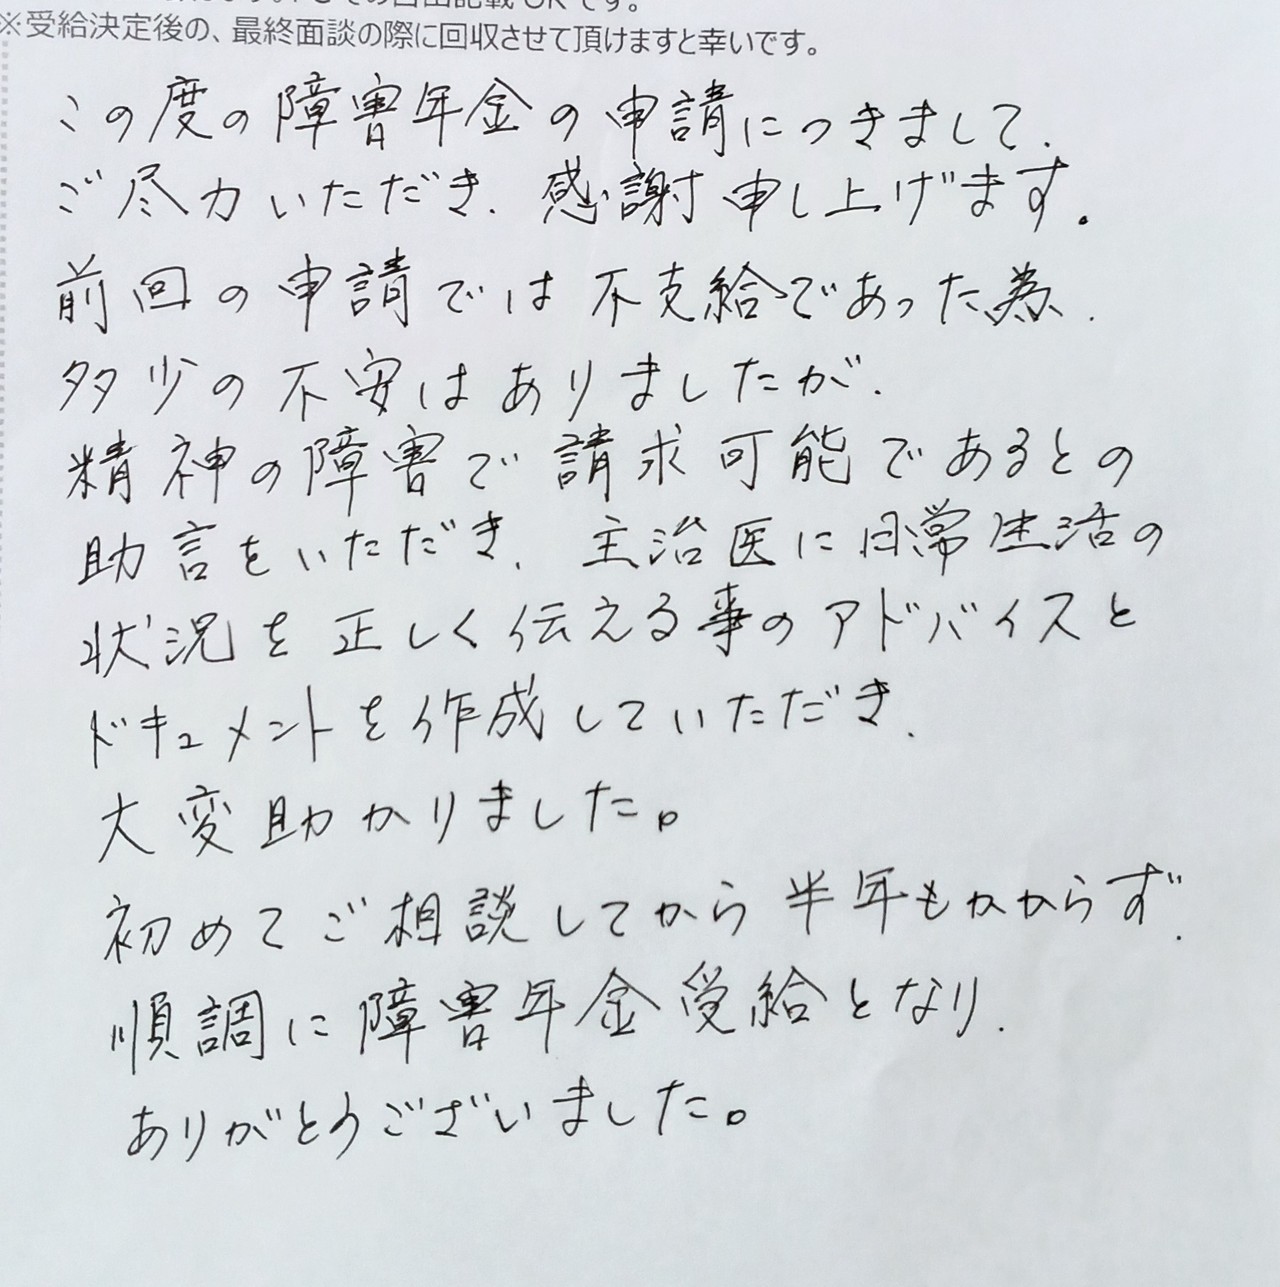 の自由記載OKです。
※受給決定後の、最終面談の際に回収させて頂けますと幸いです。
この度の障害年金の申請につきまして、
ご尽力いただき、感謝申し上げます。
前回の申請では不支給であった為、
多少の不安はありましたが、
精神の障害で請求可能であるとの
助言をいただき、主治医に日常生活の
状況を正しく伝える事のアドバイスと
ドキュメントを作成していただき、
大変助かりました。
初めてご相談してから半年もかからず、
順調に障害年金受給となり、
ありがとうございました。